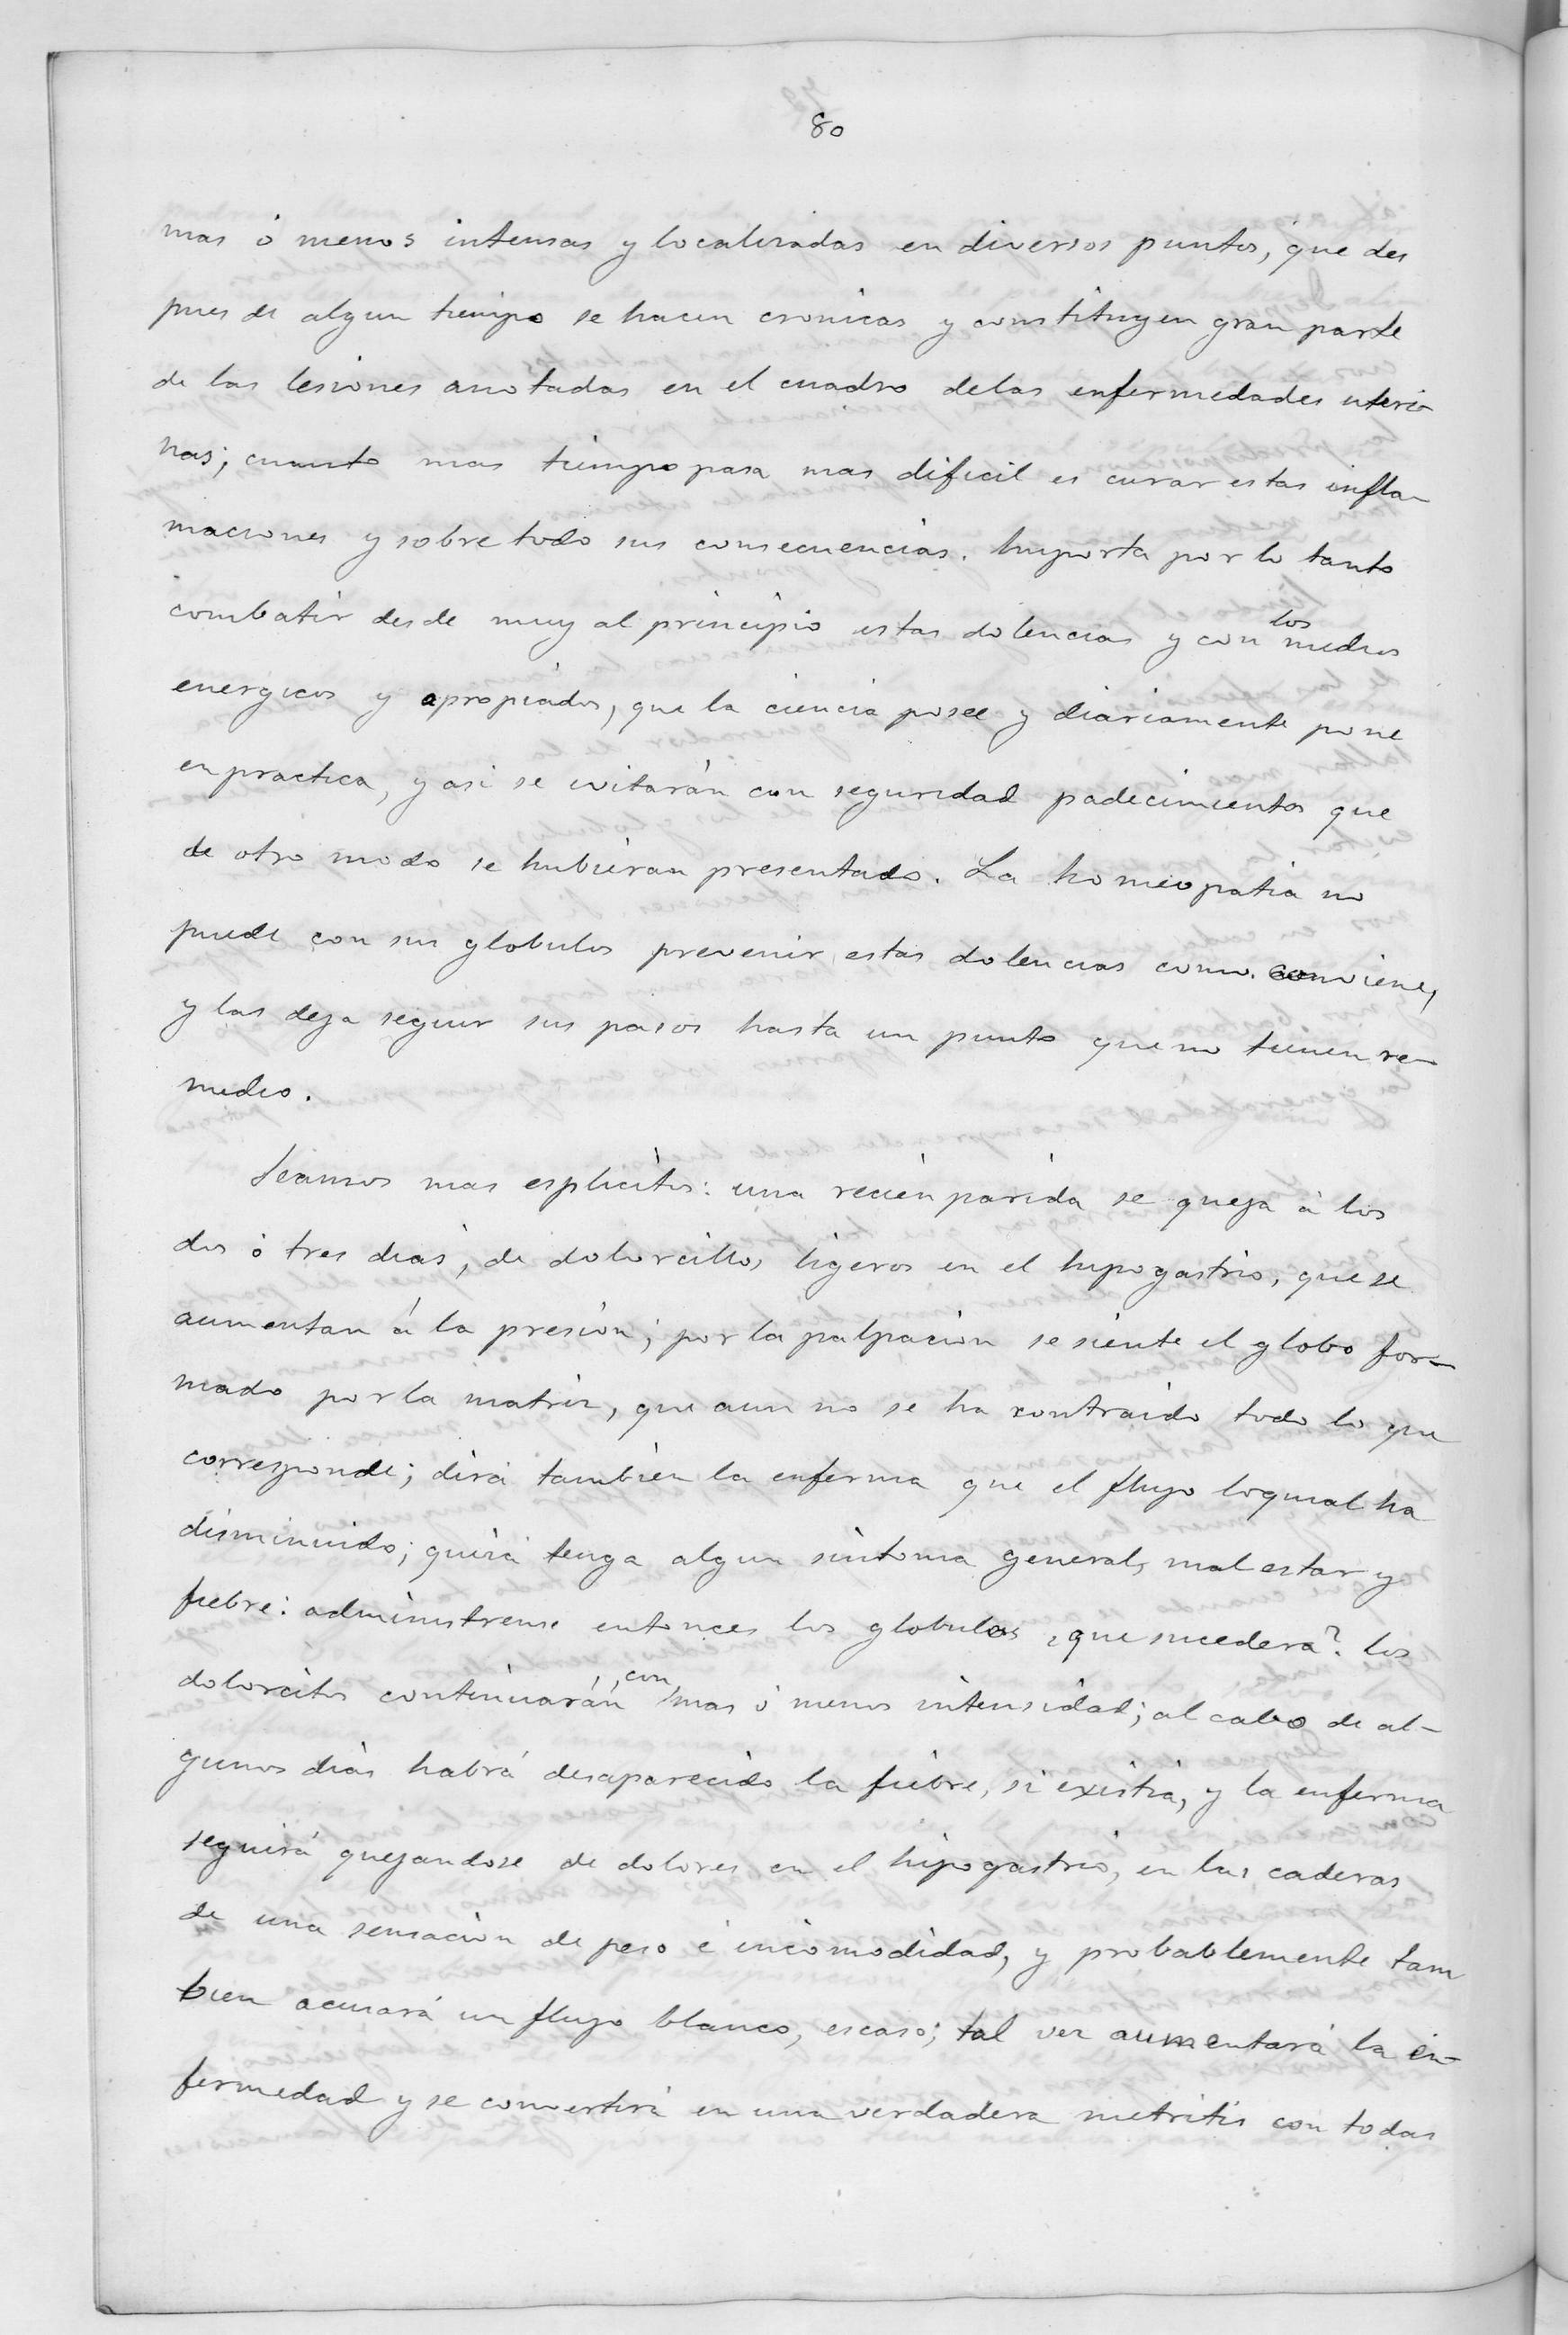 80
mas ó menos intensas y localizadas en diversos puntos, que des
pues de algun tiempo se hacen cronicas y constituyen gran parte
de las lesiones anotadas en el cuadro de las enfermedades uteri-
nas; cuanto mas tiempo pasa mas dificil es curar estas infla-
maciones y sobre todo sus consecuencias. Importa por lo tanto
combatir desde muy al principio estas dolencias y con los medios
energicos y apropiados, que la ciencia posee y diariamente pone
en practica, y asi se evitarán con seguridad padecimientos que
de otro modo se hubieran presentado. La homeopatia no
puede con sus globulos prevenir estas dolencias como conviene,
y las deja seguir sus pasos hasta un punto que no tienen re-
medio.
Seamos mas esplicitos: una recien parida se queja á los
dos ó tres dias, de dolorcillos ligeros en el hipogastrio, que se
aumentan á la presion; por la palpacion se siente el globo for-
mado por la matriz, que aun no se ha contraido todo lo que
corresponde; dirá tambien la enferma que el flujo loquial ha
disminuido; quizá tenga algun sintoma general, mal estar y
fiebre: administrense entonces los globulos ¿que sucedera? los
dolorcitos continuarán con mas ó menos intensidad; al cabo de al-
gunos dias habrá desaparecido la fiebre, si existia, y la enferma
seguirá quejandose de dolores en el hipogastrio, en las caderas
de una sensacion de peso é incomodidad, y probablemente tam
bien acusará un flujo blanco, escaso; tal vez aumentará la en-
fermedad y se convertirá en una verdadera metritis con todas